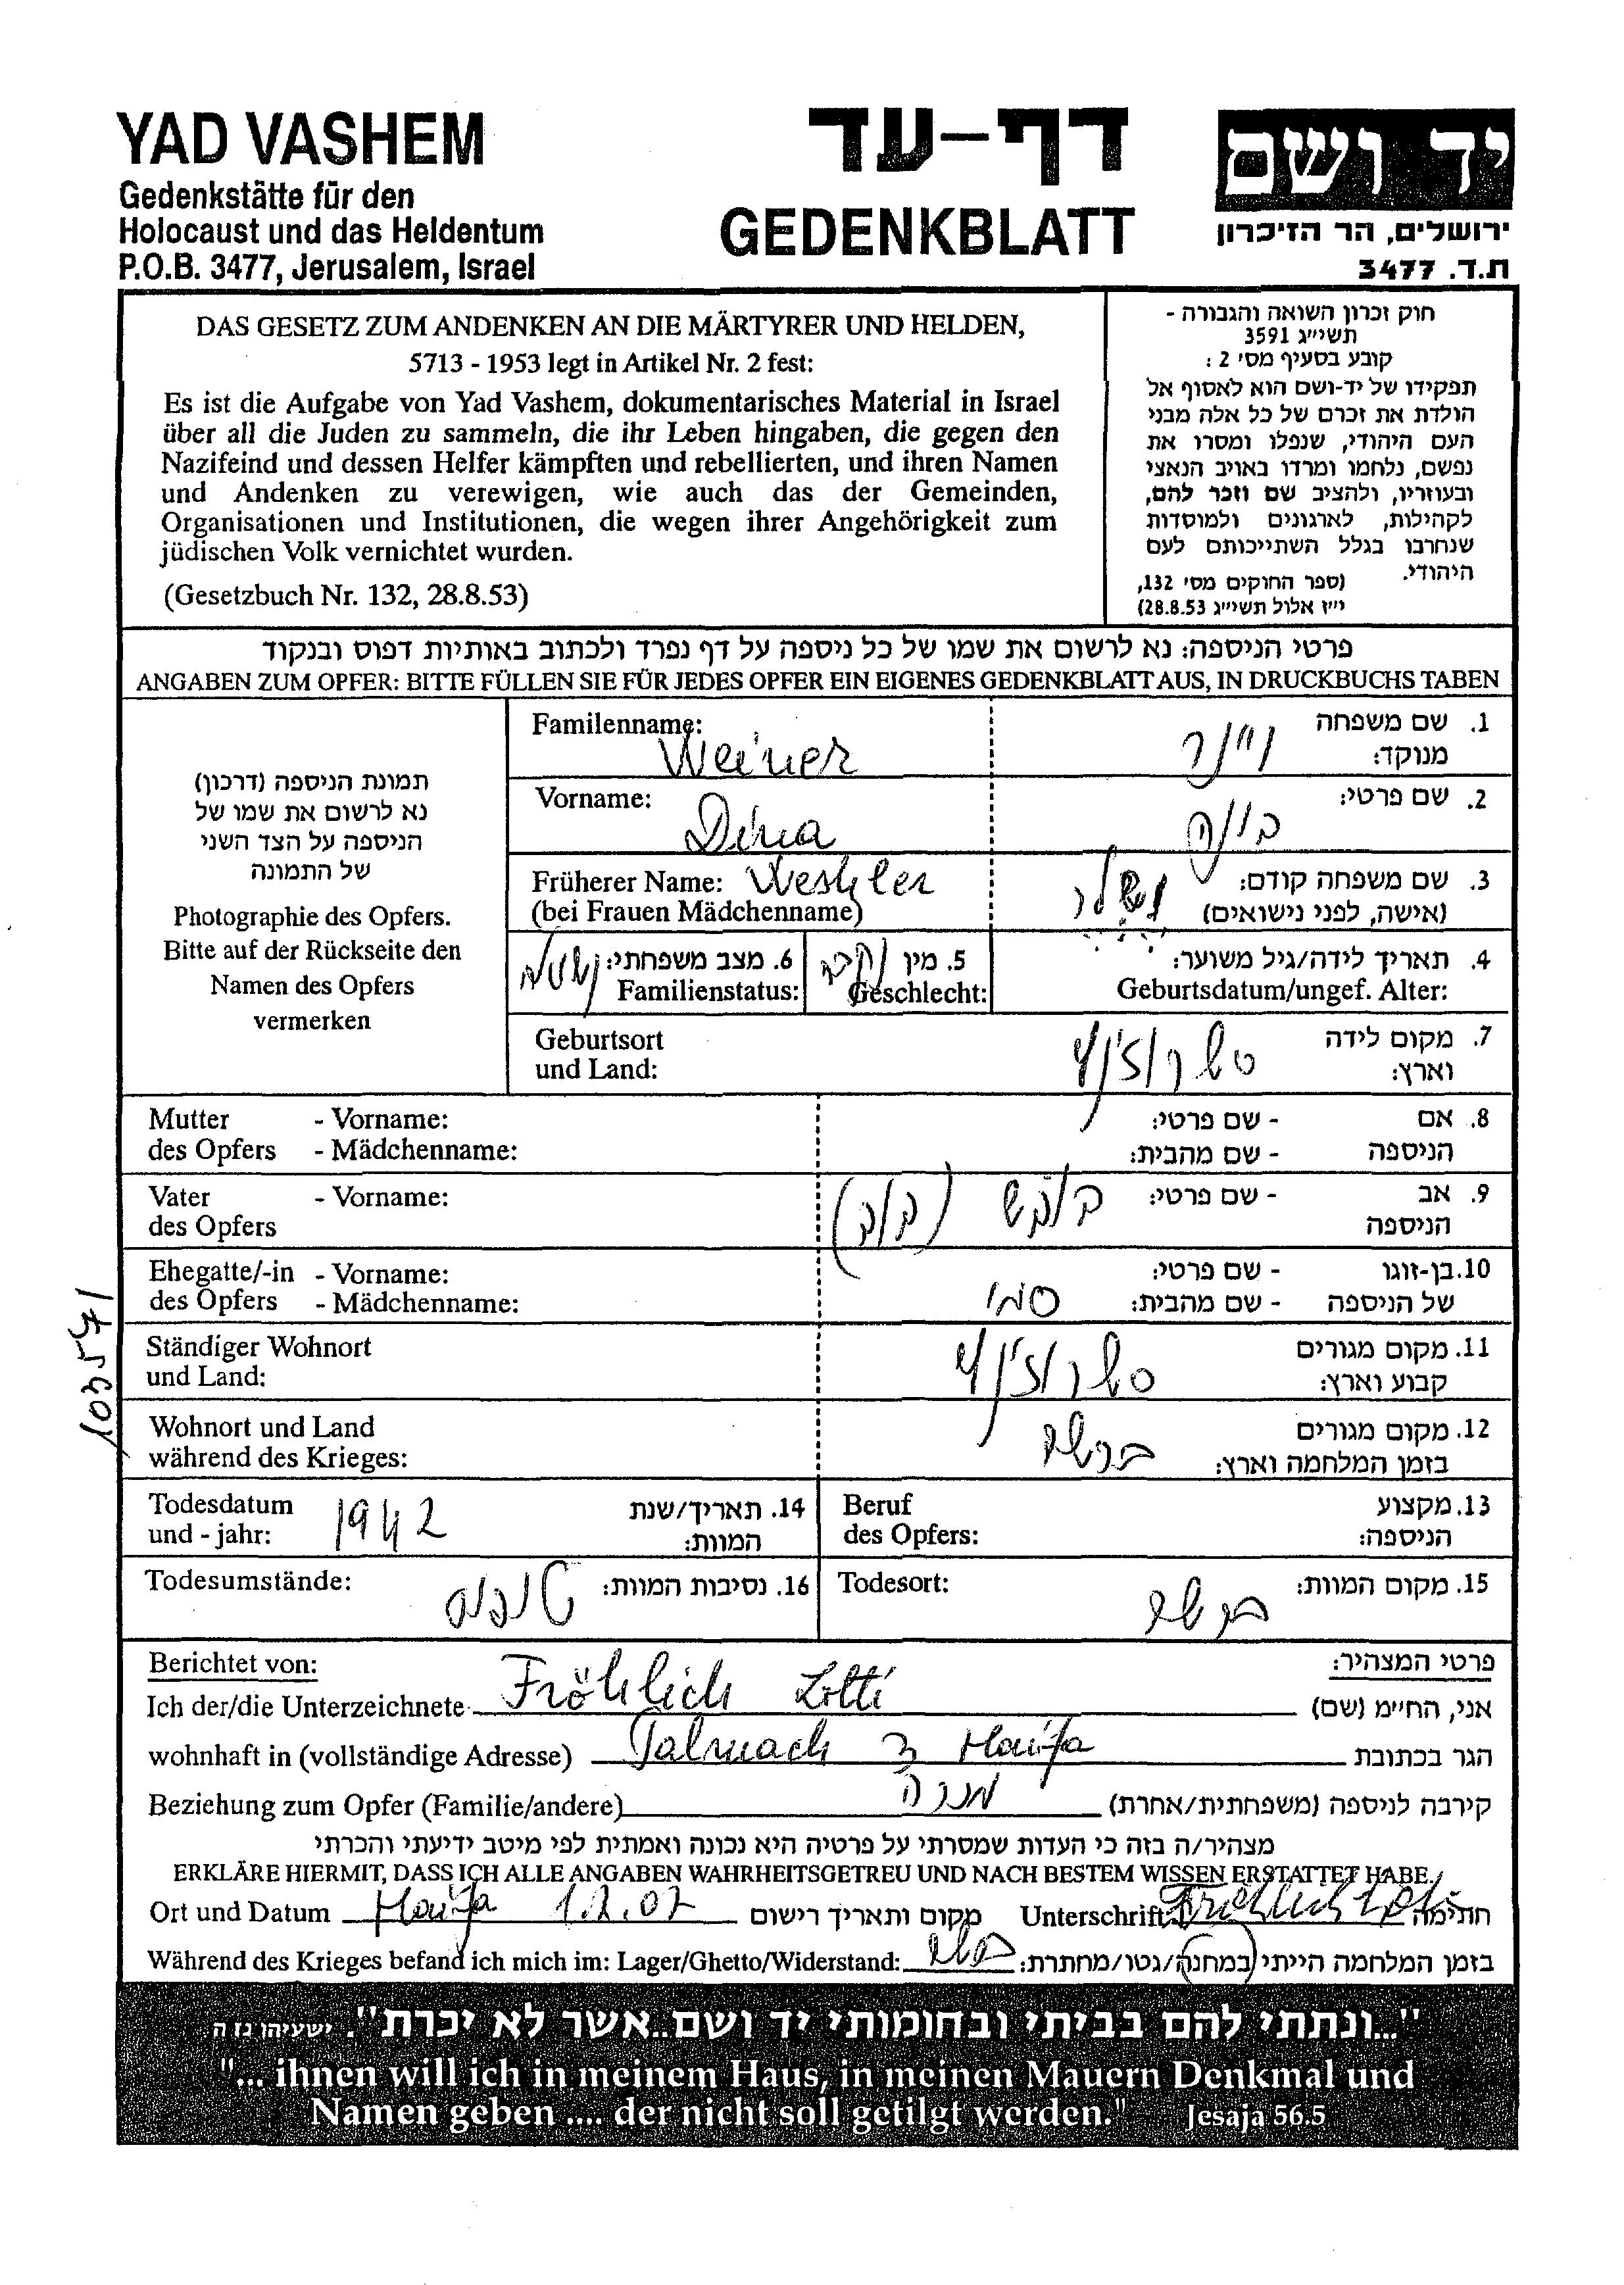 YAD VASHEM
Gedenkstätte für den
Holocaust und das Heldentum
P.O.B. 3477, Jerusalem, Israel
דף-עד
GEDENKBLATT
יד ושם
ירושלים, הר הזיכרון
ת.ד. 3477
DAS GESETZ ZUM ANDENKEN AN DIE MÄRTYRER UND HELDEN,
5713 - 1953 legt in Artikel Nr. 2 fest:
Es ist die Aufgabe von Yad Vashem, dokumentarisches Material in Israel
über all die Juden zu sammeln, die ihr Leben hingaben, die gegen den
Nazifeind und dessen Helfer kämpften und rebellierten, und ihren Namen
und Andenken zu verewigen, wie auch das der Gemeinden,
Organisationen und Institutionen, die wegen ihrer Angehörigkeit zum
jüdischen Volk vernichtet wurden.
(Gesetzbuch Nr. 132, 28.8.53)
חוק זכרון השואה והגבורה -
תשי״ג 3591
קובע בסעיף מס׳ 2 :
תפקידו של יד-ושם הוא לאסוף אל
הולדת את זכרם של כל אלה מבני
העם היהודי, שנפלו ומסרו את
נפשם, נלחמו ומרדו באויב הנאצי
ובעוזריו, ולהציב שם וזכר להם,
לקהילות, לארגונים ולמוסדות
שנחרבו בגלל השתייכותם לעם
היהודי. (ספר החוקים מס׳ 132,
י״ז אלול תשי״ג 28.8.53)
פרטי הניספה: נא לרשום את שמו של כל ניספה על דף נפרד ולכתוב באותיות דפוס ובנקוד
ANGABEN ZUM OPFER: BITTE FÜLLEN SIE FÜR JEDES OPFER EIN EIGENES GEDENKBLATT AUS, IN DRUCKBUCHS TABEN
תמונת הניספה (דרכון)
נא לרשום את שמו של
הניספה על הצד השני
של התמונה
Photographie des Opfers.
Bitte auf der Rückseite den
Namen des Opfers
vermerken
Familenname: Weiner
1. שם משפחה
מנוקד: וינר
Vorname: Dina
2. שם פרטי: דינה
Früherer Name:
(bei Frauen Mädchenname)
3. שם משפחה קודם:
(אישה, לפני נישואים) ושלר
4. תאריך לידה/גיל משוער:
Geburtsdatum/ungef. Alter:
5. מין נקבה
Geschlecht:
6. מצב משפחתי: נשואה
Familienstatus:
Geburtsort
und Land:
7. מקום לידה
וארץ: טשרנוביץ
Mutter - Vorname:
des Opfers - Mädchenname:
8. אם - שם פרטי:
הניספה - שם מהבית:
Vater - Vorname:
des Opfers
9. אב - שם פרטי:
הניספה
Ehegatte/-in - Vorname:
des Opfers - Mädchenname:
10. בן-זוגו - שם פרטי:
של הניספה - שם מהבית: סמי
Ständiger Wohnort
und Land:
11. מקום מגורים
קבוע וארץ: טשרנוביץ
Wohnort und Land
während des Krieges:
12. מקום מגורים
בזמן המלחמה וארץ: ברשד
Todesdatum
und - jahr: 1942
14. תאריך/שנת
המוות:
Beruf
des Opfers:
13. מקצוע
הניספה:
Todesumstände:
16. נסיבות המוות: טיפוס
Todesort:
15. מקום המוות: ברשד
Berichtet von:
פרטי המצהיר:
Ich der/die Unterzeichnete Fröhlich Lotti אני, החיימ (שם)
wohnhaft in (vollständige Adresse) Palmach 3 Haifa הגר בכתובת
Beziehung zum Opfer (Familie/andere) מכרה קירבה לניספה (משפחתית/אחרת)
מצהיר/ה בזה כי העדות שמסרתי על פרטיה היא נכונה ואמתית לפי מיטב ידיעתי והכרתי
ERKLÄRE HIERMIT, DASS ICH ALLE ANGABEN WAHRHEITSGETREU UND NACH BESTEM WISSEN ERSTATTET HABE.
Ort und Datum Haifa 1.2.07 מקום ותאריך רישום Unterschrift: Fröhlich Lotti חתימה
Während des Krieges befand ich mich im: Lager/Ghetto/Widerstand: ברשד בזמן המלחמה הייתי (במחנה/גטו/מחתרת:
"...ונתתי להם בביתי ובחומותי יד ושם...אשר לא יכרת". ישעיהו נו ה
"... ihnen will ich in meinem Haus, in meinen Mauern Denkmal und
Namen geben .... der nicht soll getilgt werden." Jesaja 56.5
103571